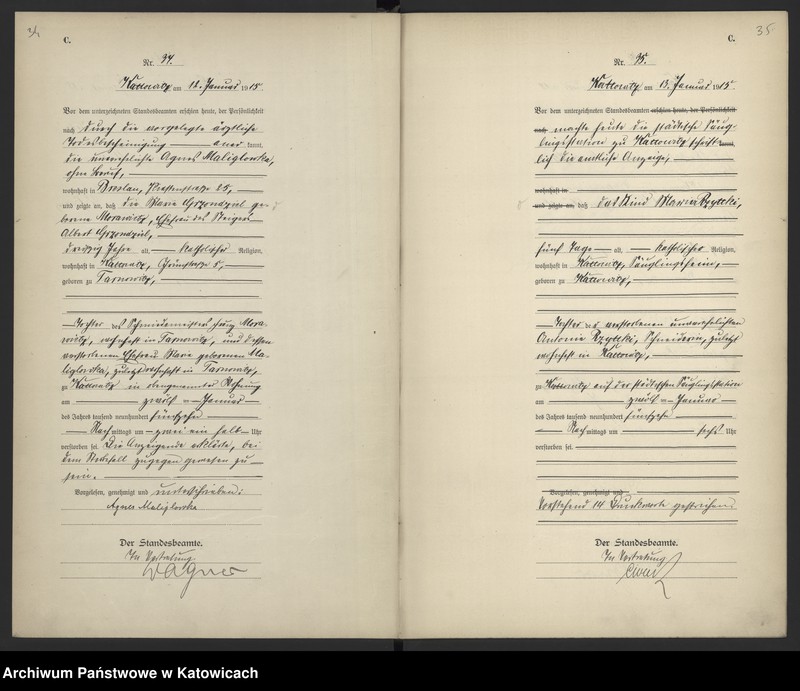 34
C.
Nr. 34.
Kattowitz am 12. Januar 1915.
Vor dem unterzeichneten Standesbeamten erschien heute, der Persönlichkeit
nach durch die vorgelegte ärztliche
Todesbescheinigung — aner kannt,
die unverehelichte Agnes Maliglowka,
ohne Beruf,
wohnhaft in Breslau, 25,
und zeigte an, daß die Marie Grzondziel ge-
borene Morawietz, Ehefrau des Steigers
Albert Grzondziel,
dreißig Jahre alt, katholischer Religion,
wohnhaft in Kattowitz, Grünstraße 5,
geboren zu Tarnowitz,
Tochter des Schmiedemeisters Mora-
wietz, wohnhaft in Tarnowitz, und dessen
verstorbenen Ehefrau Marie geborenen Ma-
liglowka, zuletzt wohnhaft in Tarnowitz,
zu Kattowitz in obengenannter Wohnung
am zwölften Januar
des Jahres tausend neunhundert fünfzehn
Nach mittags um zwei ein halb Uhr
verstorben sei. Die Anzeigende erklärte, bei
dem Sterbefall zugegen gewesen zu
sein.
Vorgelesen, genehmigt und unterschrieben:
Agnes Maliglowka
Der Standesbeamte.
In Vertretung
Wagner
35
C.
Nr. 35.
Kattowitz am 13. Januar 1915.
Vor dem unterzeichneten Standesbeamten erschien heute, der Persönlichkeit
nach machte heute die städtische Säug-
lingsstation zu Kattowitz schrift- kannt,
lich die amtliche Anzeige,
wohnhaft in
und zeigte an, daß das Kind Maria Rzytki,
fünf Tage alt, katholischer Religion,
wohnhaft in Kattowitz, Säuglingsheim,
geboren zu Kattowitz,
Tochter der verstorbenen unverehelichten
Antonie Rzytki, Schneiderin, zuletzt
wohnhaft in Kattowitz,
zu Kattowitz auf der städtischen Säuglingsstation
am zwölften Januar
des Jahres tausend neunhundert fünfzehn
Nach mittags um sechs Uhr
verstorben sei.
Vorgelesen, genehmigt und
Vorstehend 14 Druckworte gestrichen.
Der Standesbeamte.
In Vertretung
Archiwum Państwowe w Katowicach